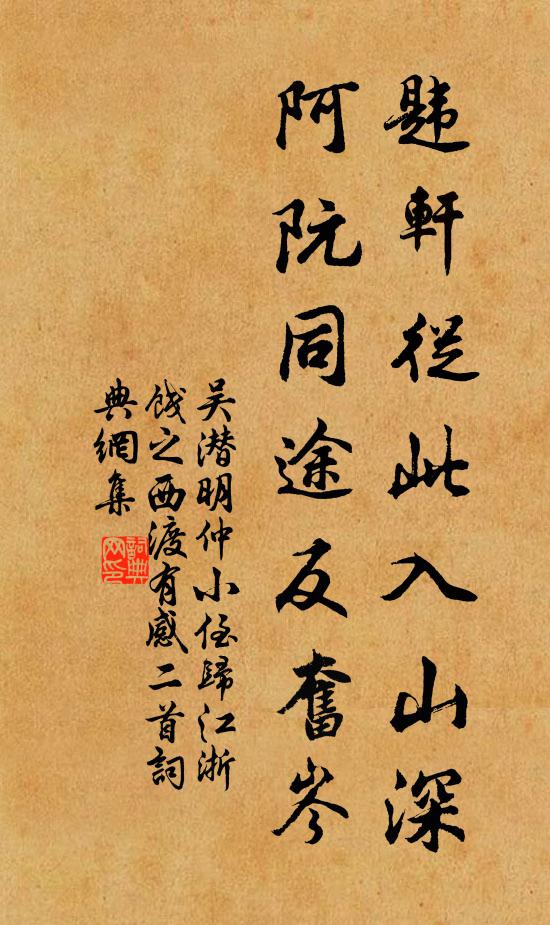 韙軒從此入山深
阿阮同途反奮岑
吴潜明仲小侄歸江浙
餞之西渡有感二首詞
典網集
詞典网印